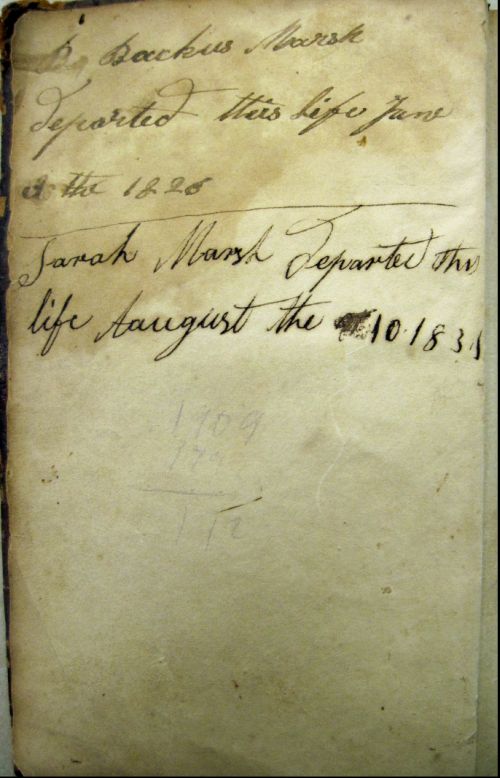 Backus Marsh
departed this life Jane
the 1826
Sarah Marsh departed this
life Aaugust the 10 1831
1709